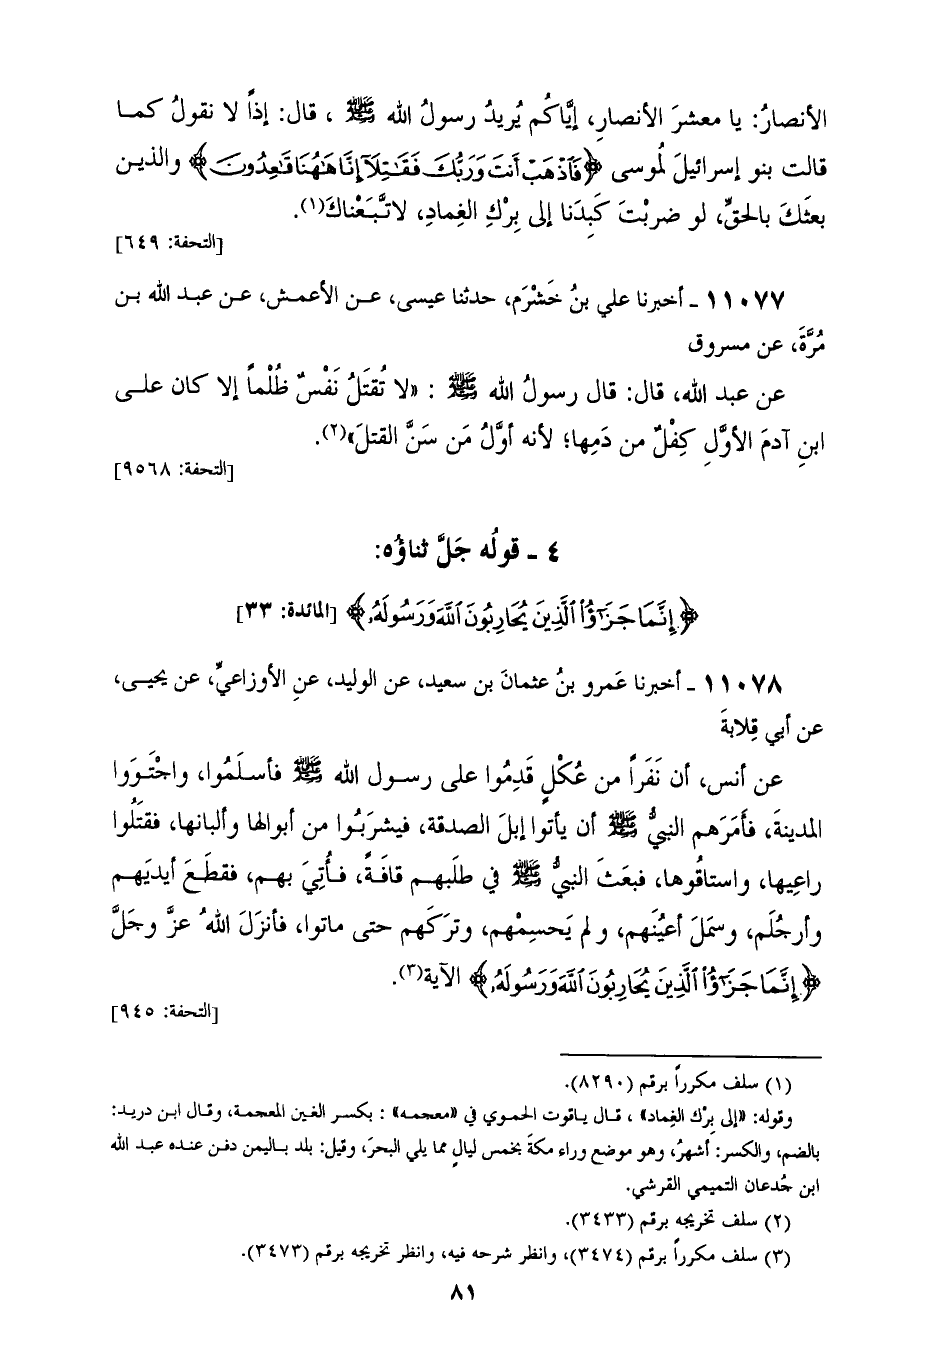 الأنصارُ: يا معشرَ الأنصارِ، إيَّاكُم يُريدُ رسولُ الله ﷺ ، قال: إذاً لا نقولُ كما
قالت بنو إسرائيلَ لمُوسى ﴿فَٱذْهَبْ أَنتَ وَرَبُّكَ فَقَٰتِلَآ إِنَّا هَٰهُنَا قَٰعِدُونَ﴾ والذين
بعثَكَ بالحقِّ، لو ضربْتَ كَبِدَنا إلى بِرْكِ الغِمادِ، لاتَّبَعْناكَ(١).
[التحفة: ٦٤٩]
١١٠٧٧ ـ أخبرنا علي بنُ خَشْرَم، حدثنا عيسى، عن الأعمش، عن عبد الله بن
مُرَّةَ، عن مسروق
عن عبد الله، قال: قال رسولُ الله ﷺ : «لا تُقتَلُ نَفْسٌ ظُلْماً إلا كان على
ابنِ آدمَ الأوَّلِ كِفْلٌ من دَمِها؛ لأنه أوَّلُ مَن سَنَّ القتلَ»(٢).
[التحفة: ٩٥٦٨]
٤ ـ قولُه جَلَّ ثناؤُه:
﴿إِنَّمَا جَزَٰٓؤُا۟ ٱلَّذِينَ يُحَارِبُونَ ٱللَّهَ وَرَسُولَهُۥ﴾ [المائدة: ٣٣]
١١٠٧٨ ـ أخبرنا عَمرو بنُ عثمانَ بن سعيد، عن الوليد، عنِ الأوزاعيِّ، عن يحيى،
عن أبي قِلابةَ
عن أنس، أن نَفَراً من عُكْلٍ قَدِمُوا على رسول الله ﷺ فأسلَمُوا، واجْتَوَوا
المدينةَ، فأمَرَهم النبيُّ ﷺ أن يأتوا إبلَ الصدقة، فيشرَبُوا من أبوالها وألبانها، فقتَلُوا
راعِيها، واستاقُوها، فبعَثَ النبيُّ ﷺ في طلَبهم قافَةً، فأُتِيَ بهم، فقطَعَ أيديَهم
وأرجُلَم، وسمَلَ أعيُنَهم، ولم يَحسِمْهم، وتركَهم حتى ماتوا، فأنزَلَ اللهُ عزَّ وجَلَّ
﴿إِنَّمَا جَزَٰٓؤُا۟ ٱلَّذِينَ يُحَارِبُونَ ٱللَّهَ وَرَسُولَهُۥ﴾ الآية(٣).
[التحفة: ٩٤٥]
(١) سلف مكرراً برقم (٨٢٩٠).
وقوله: «إلى بِرْك الغِماد» ، قال ياقوت الحموي في «معجمه» : بكسر الغين المعجمة، وقال ابن دريد:
بالضم، والكسر: أشهرُ، وهو موضع وراء مكةَ بخمس ليالٍ مما يلي البحرَ، وقيل: بلد باليمن دفن عنده عبد الله
ابن جُدعان التميمي القرشي.
(٢) سلف تخريجه برقم (٣٤٣٣).
(٣) سلف مكرراً برقم (٣٤٧٤)، وانظر شرحه فيه، وانظر تخريجه برقم (٣٤٧٣).
٨١